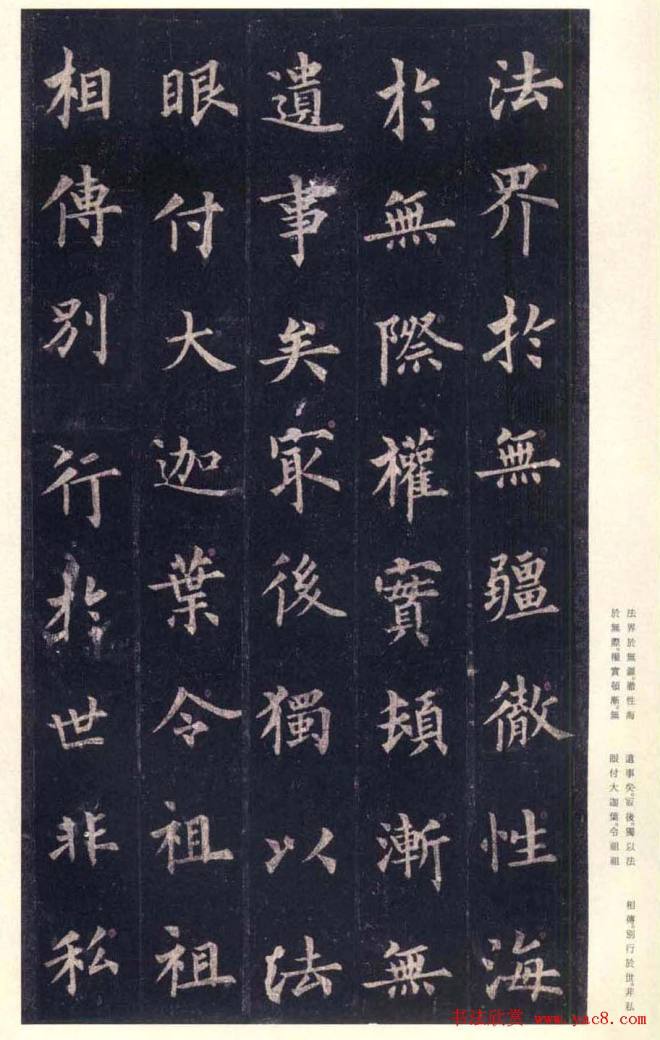 法界於無疆徹性海
於無際權實頓漸無
遺事矣㝡後獨以法
眼付大迦葉令祖祖
相傳別行於世非私
法界於無疆。徹性海
於無際。權實頓漸。無
遺事矣。㝡後。獨以法
眼付大迦葉。令祖祖
相傳。別行於世。非私
书法欣赏 www.yac8.com